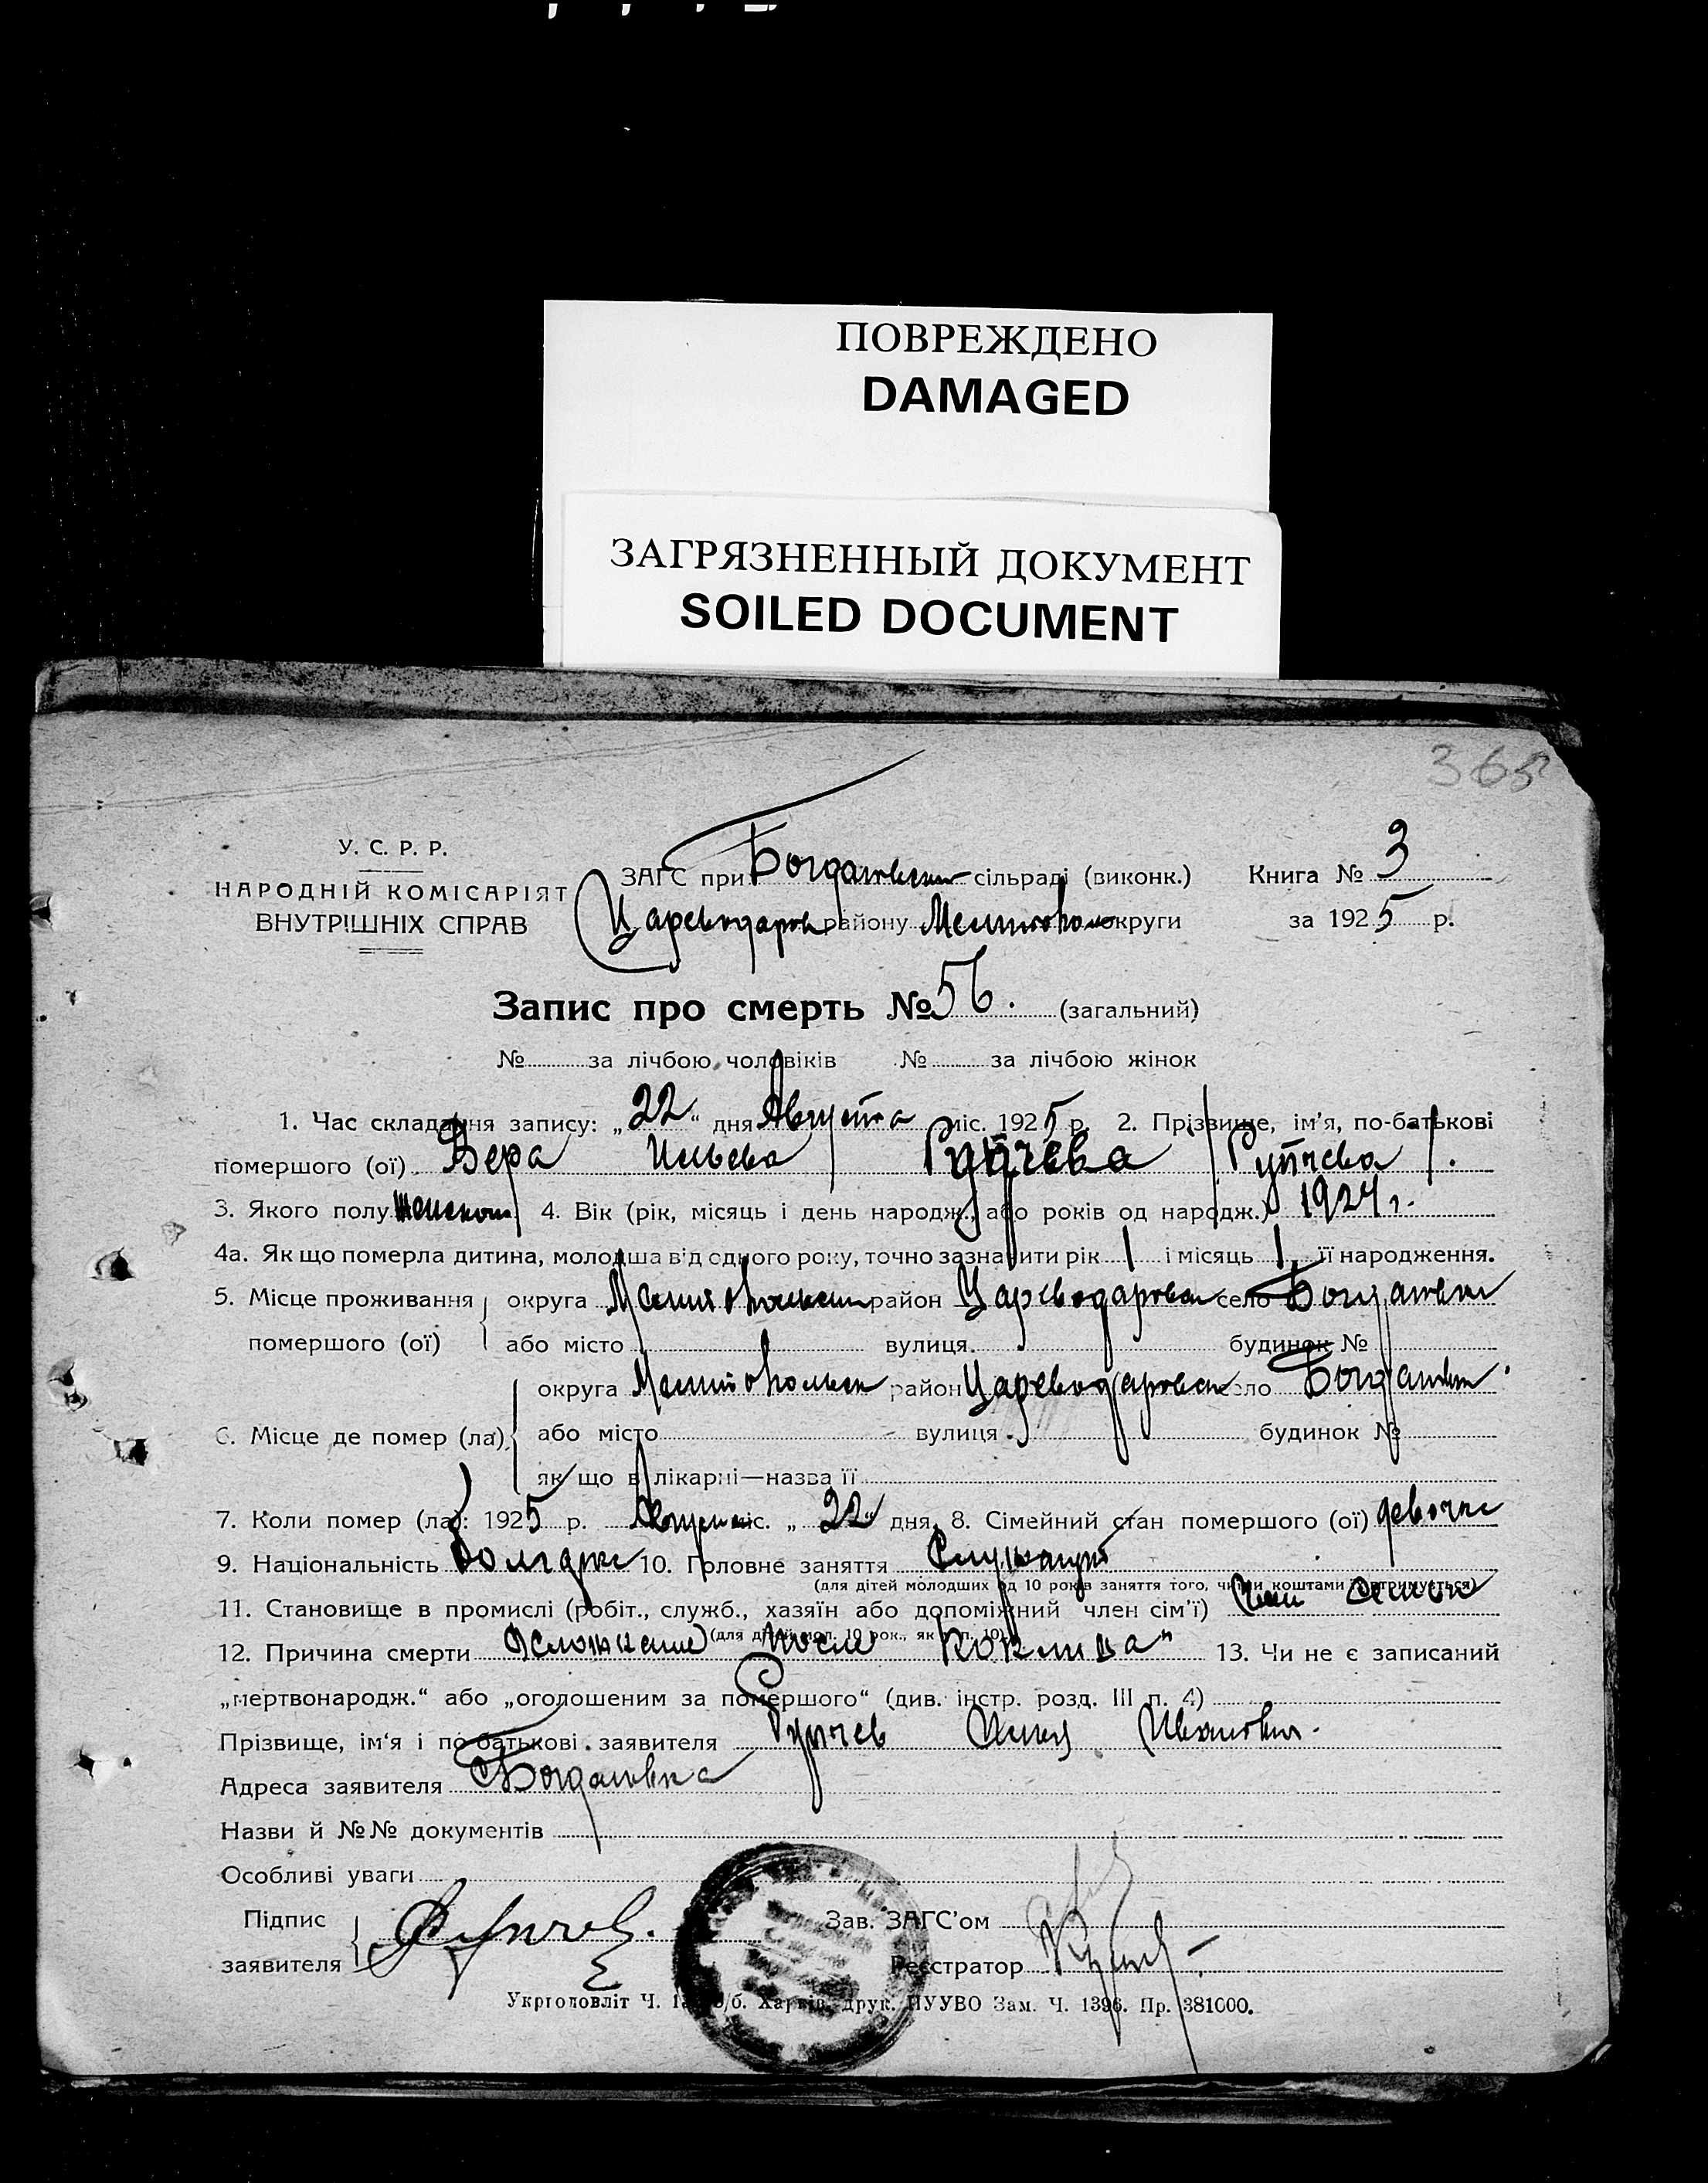 ПОВРЕЖДЕНО
DAMAGED
ЗАГРЯЗНЕННЫЙ ДОКУМЕНТ
SOILED DOCUMENT
365
У. С. Р. Р.
НАРОДНІЙ КОМІСАРІЯТ
ВНУТРІШНІХ СПРАВ
ЗАГС при Богдановском сільраді (виконк.) Книга № 3
Цареводаров району Мелитопол округи за 1925 р.
Запис про смерть № 56. (загальний)
№ за лічбою чоловіків № за лічбою жінок
1. Час складання запису: „22“ дня Августа міс. 1925 р. 2. Прізвище, ім'я, по-батькові
помершого (ої) Вера Ильева Рупчева /Рупчева/.
3. Якого полу женском 4. Вік (рік, місяць і день народж., або років од народж.) 1924 г.
4а. Як що померла дитина, молодша від одного року, точно зазначити рік 1 і місяць 1 її народження.
5. Місце проживання округа Мелитопольск район Цареводаровск село Богдановк
помершого (ої) або місто вулиця будинок №
округа Мелитопольск район Цареводаровск село Богдановк
6. Місце де помер (ла) або місто вулиця будинок №
як що в лікарні—назва її
7. Коли помер (ла): 1925 р. Августа міс. „22“ дня 8. Сімейний стан помершого (ої) девочка
9. Національність болгарка 10. Головне заняття
(для дітей молодших од 10 років заняття того, чиїми коштами утримується)
11. Становище в промислі (робіт., служб., хазяїн або допоміжний член сім'ї) член семьи
(для дітей мол. 10 рок., як в п. 10)
12. Причина смерти Осложнение после коклюша" 13. Чи не є записаний
„мертвонародж.“ або „оголошеним за помершого“ (див. інстр. розд. III п. 4)
Прізвище, ім'я і по-батькові заявителя Рупчев Илья Иванович.
Адреса заявителя с Богдановка
Назви й №№ документів
Особливі уваги
Підпис Зав. ЗАГС'ом
заявителя Рупчев. Реєстратор
Укрголовліт Ч. Харків, друк. ПУУВО Зам. Ч. 1396. Пр. 381000.